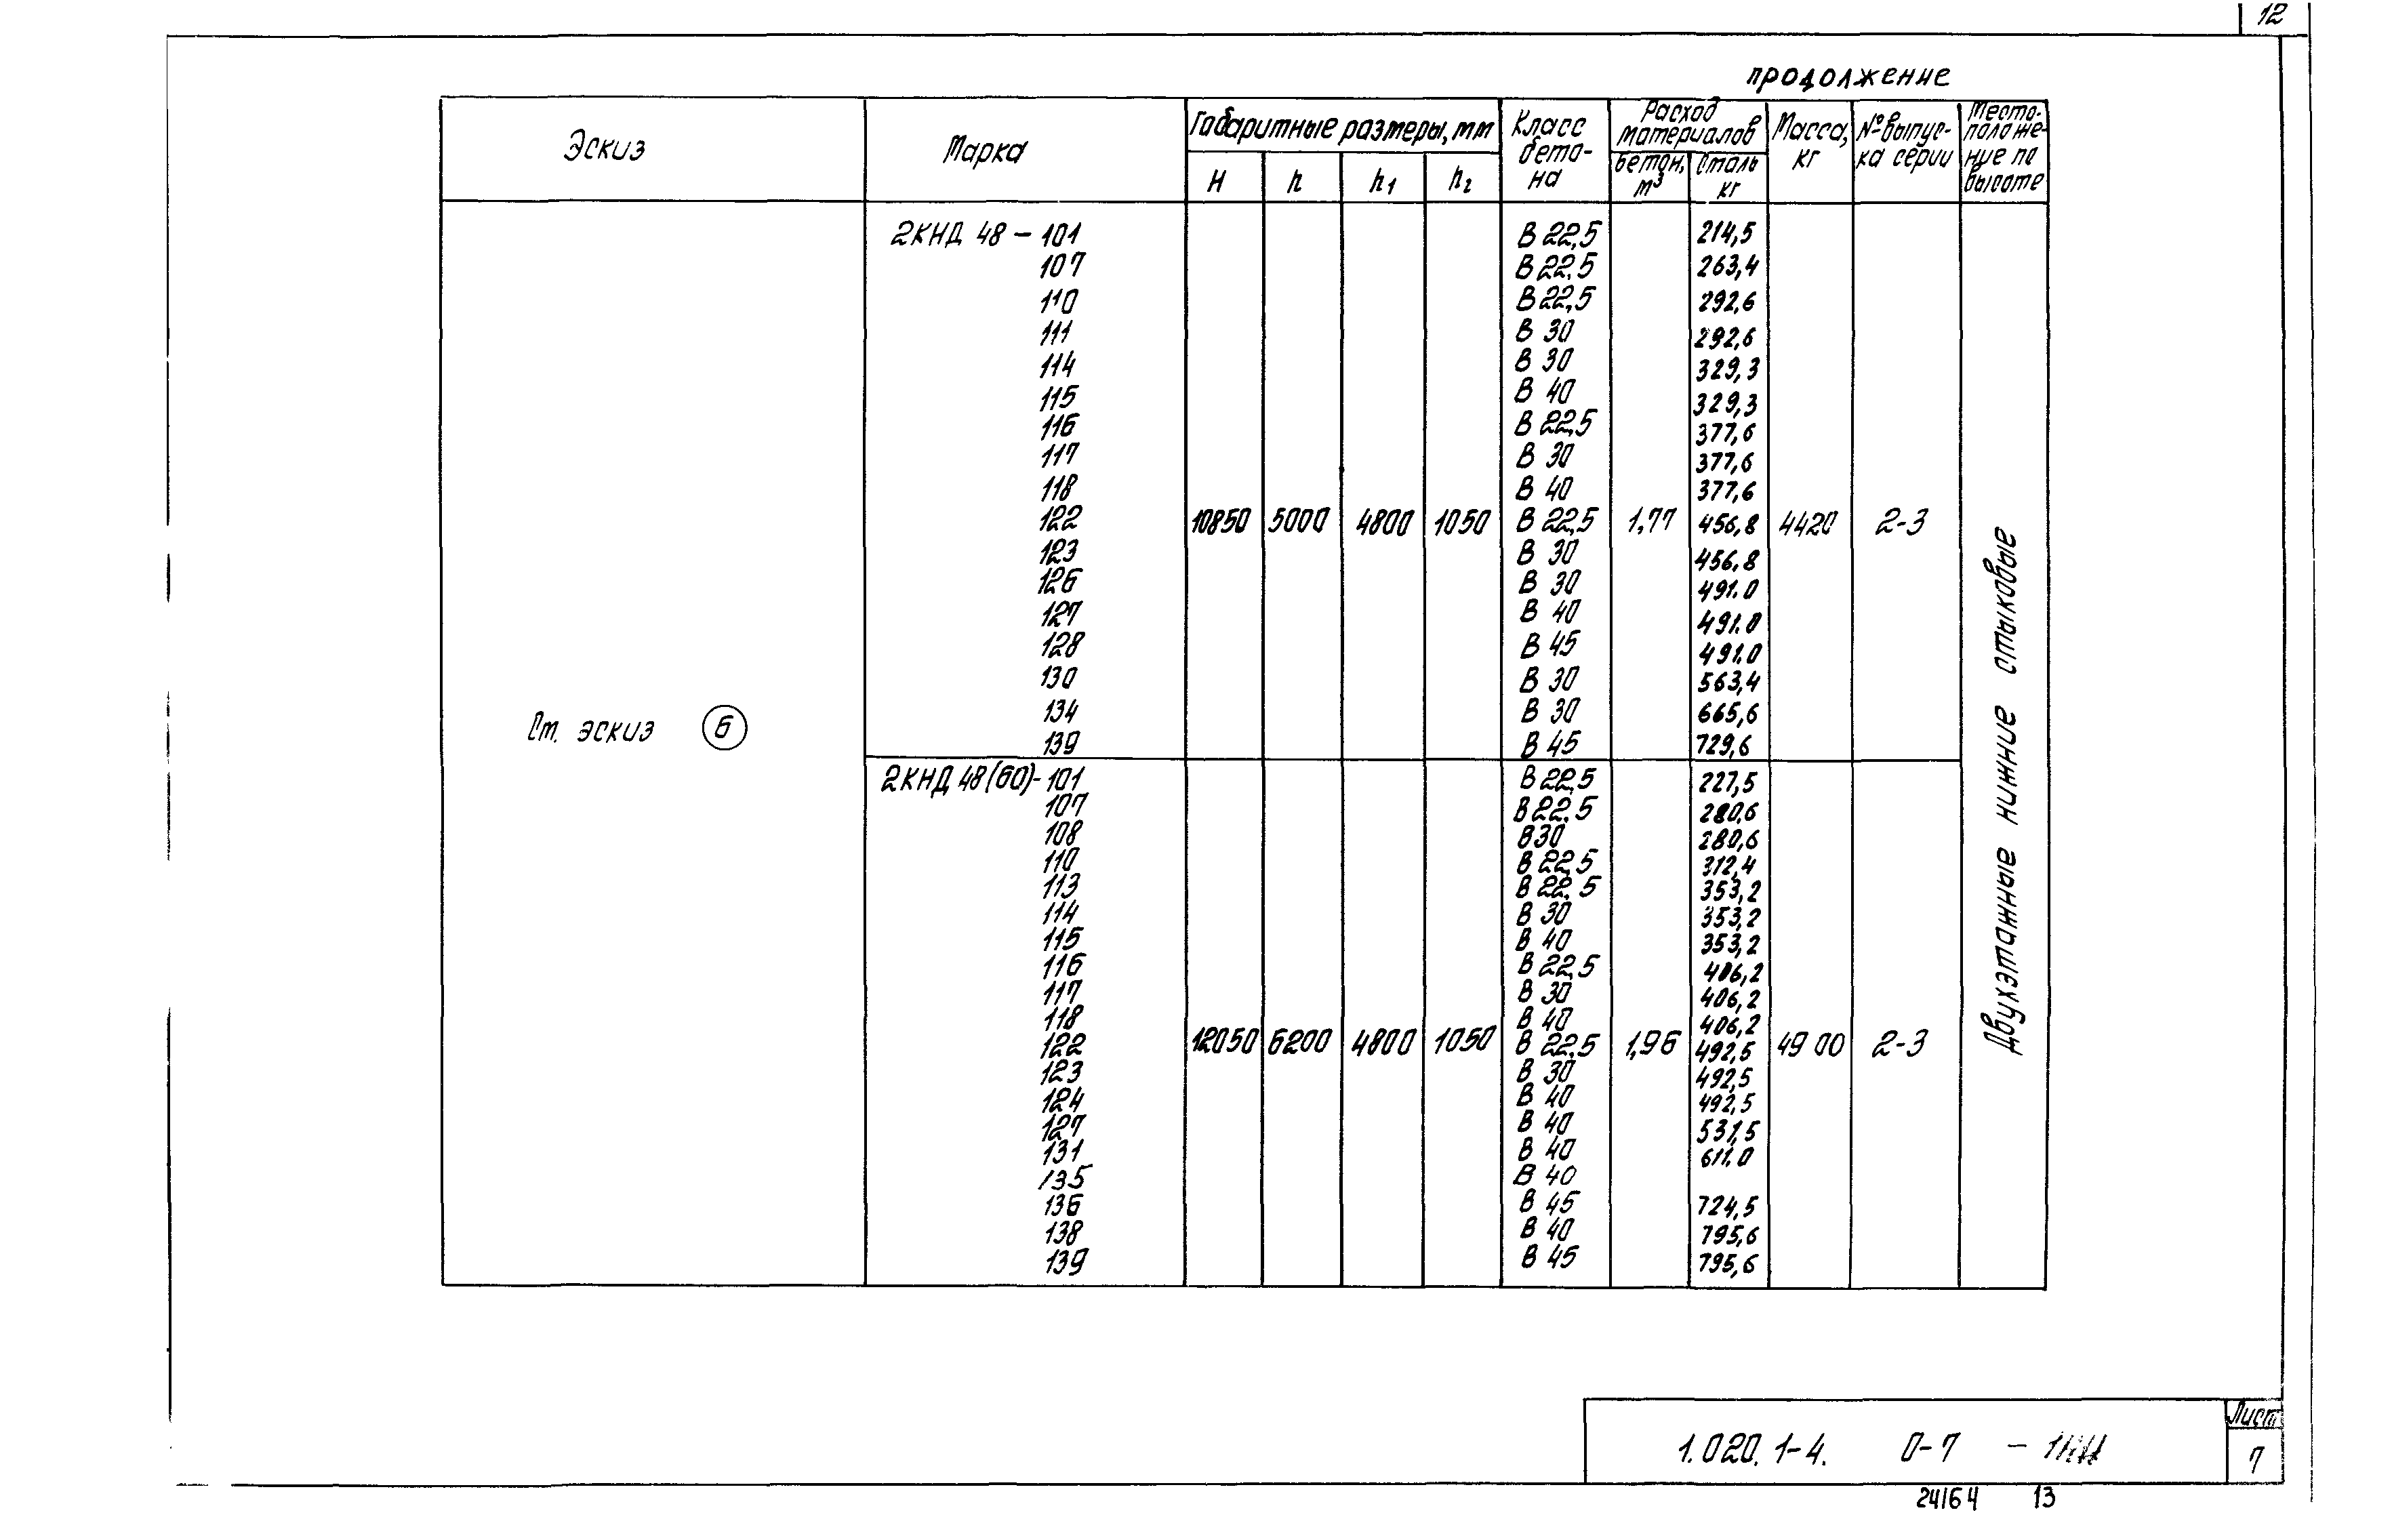 12
продолжение
Эскиз Марка Габаритные размеры, мм Класс бето- на Расход материалов Масса, кг № выпус- ка серии Место- положе- ние по высоте
H h h₁ h₂ бетон, м³ Сталь кг
2КНД 48 – 101 В 22,5 214,5
107 В 22,5 263,4
110 В 22,5 292,6
111 В 30 292,6
114 В 30 329,3
115 В 40 329,3
116 В 22,5 377,6
117 В 30 377,6
118 В 40 377,6
122 10850 5000 4800 1050 В 22,5 1,77 456,8 4420 2-3
123 В 30 456,8
126 В 30 491.0
127 В 40 491.0
128 В 45 491.0
130 В 30 563,4
134 В 30 665,6
139 В 45 729,6
См. эскиз 6
2КНД 48(60)-101 В 22,5 227,5
107 В 22,5 280,6
108 В30 280,6
110 В 22,5 312,4
113 В 22,5 353,2
114 В 30 353,2
115 В 40 353,2
116 В 22,5 406,2
117 В 30 406,2
118 В 40 406,2
122 12050 6200 4800 1050 В 22,5 1,96 492,5 4900 2-3
123 В 30 492,5
124 В 40 492,5
127 В 40 531,5
131 В 40 611.0
135 В 40
136 В 45 724,5
138 В 40 795,6
139 В 45 795,6
Двухэтажные нижние стыковые
1.020.1-4. 0-7
Лист
7
24164 13